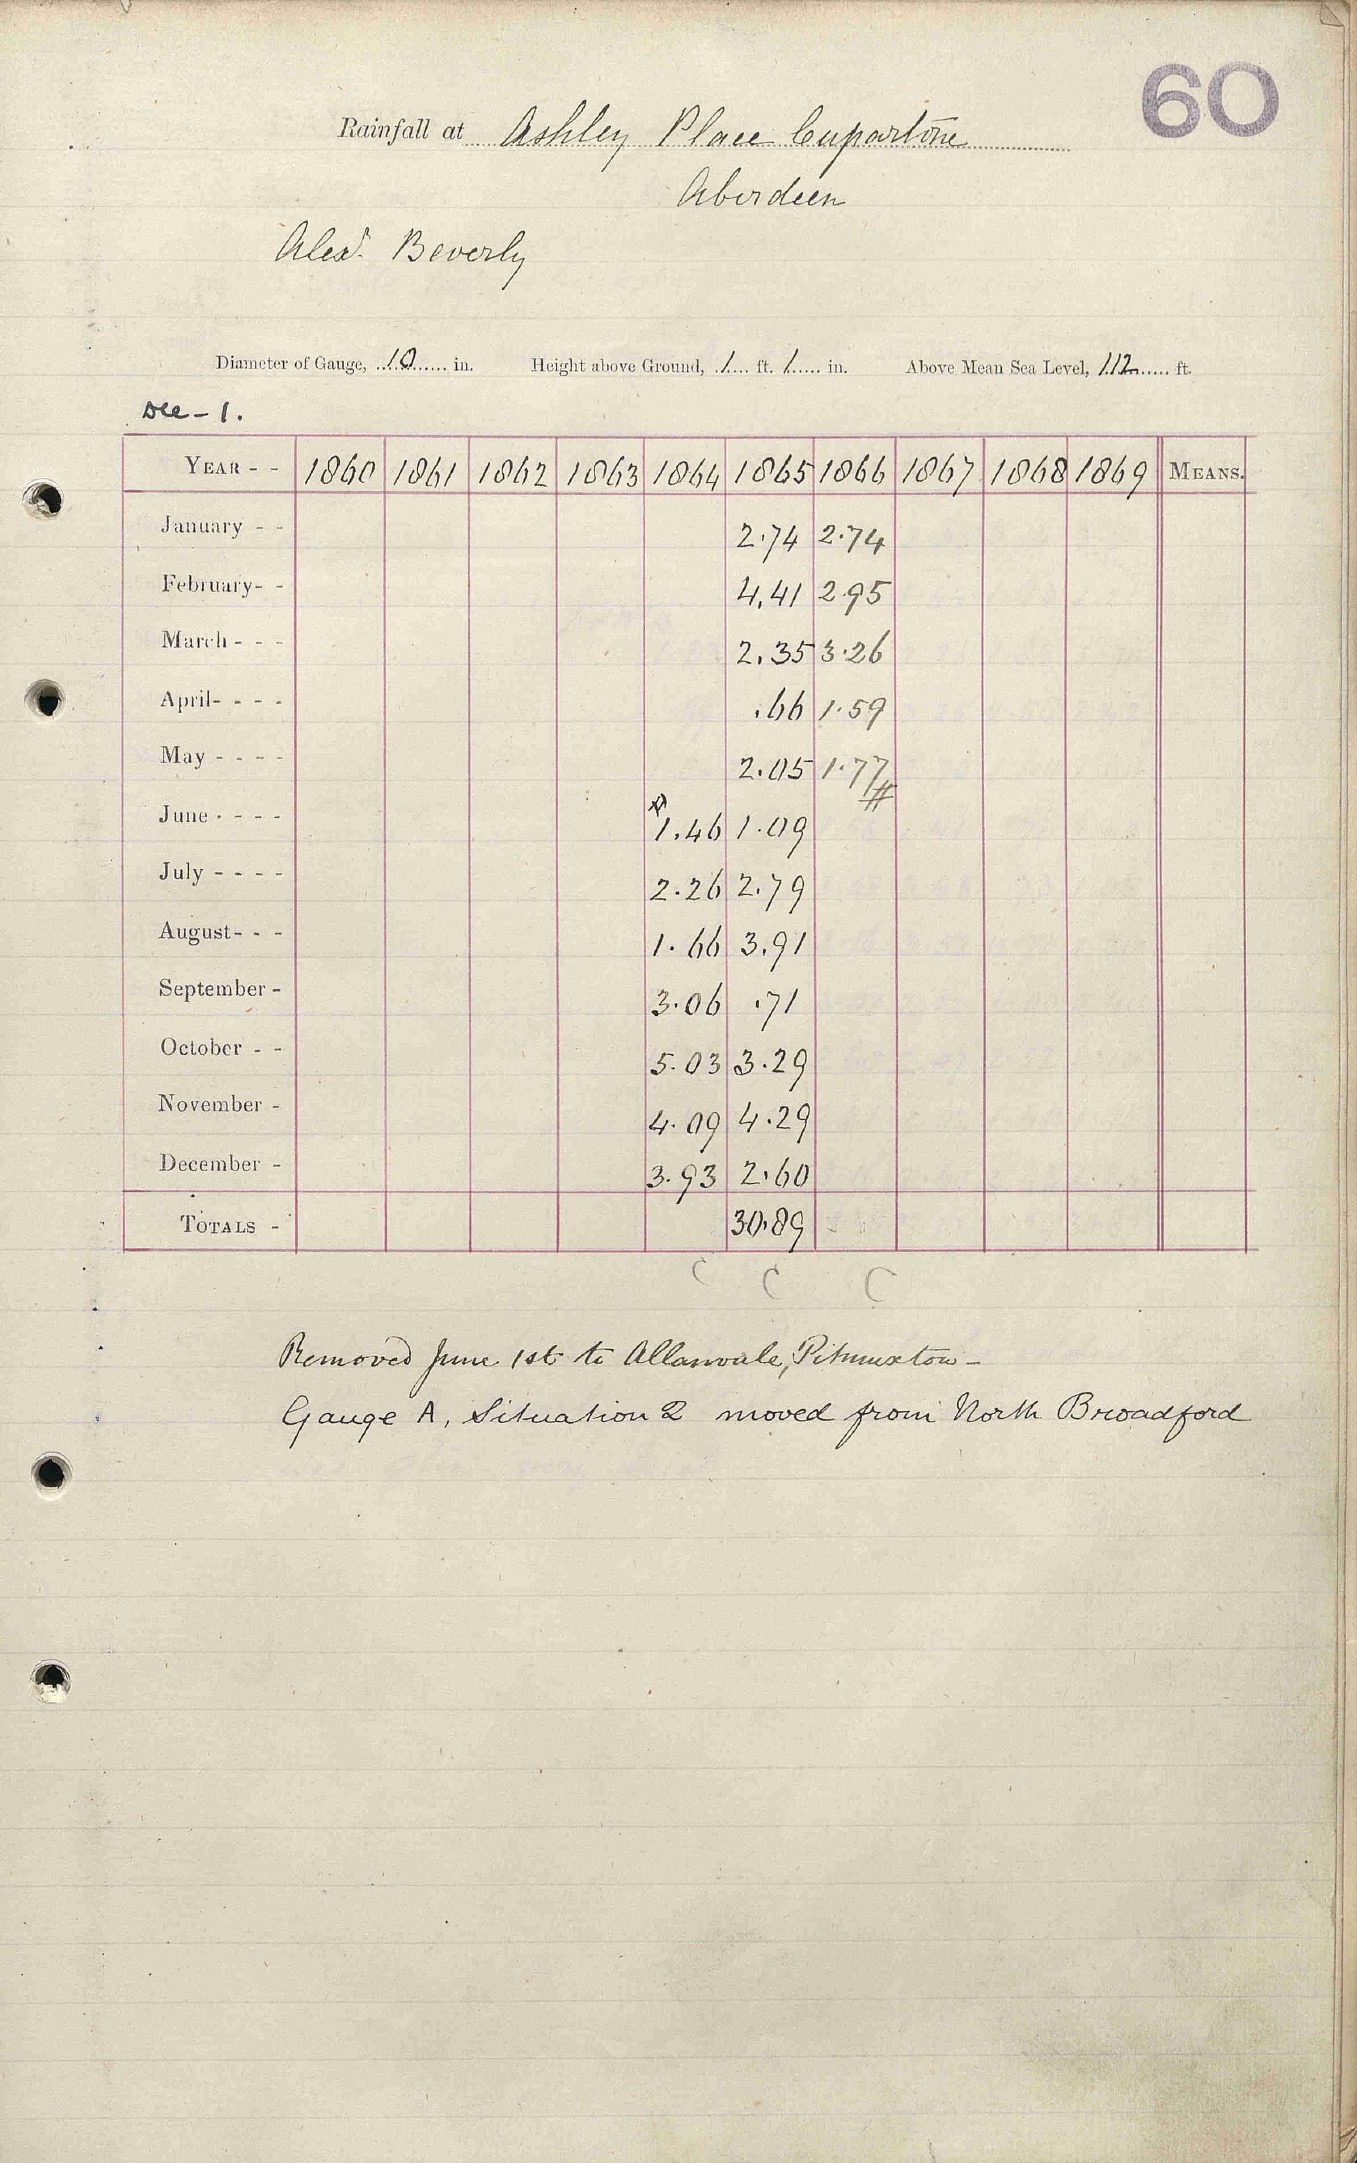 60
Rainfall at Ashley Place Cuparstone
Aberdeen
Alexr. Beverly
Diameter of Gauge, 10 in. Height above Ground, 1 ft. 1 in. Above Mean Sea Level, 112 ft.
Dec - 1.
YEAR - - 1860 1861 1862 1863 1864 1865 1866 1867 1868 1869 MEANS.
January - - 2.74 2.74
February - - 4.41 2.95
March - - - 2.35 3.26
April - - - - .66 1.59
May - - - - 2.05 1.77 #
June - - - - 1.46 1.09
July - - - - 2.26 2.79
August - - - 1.66 3.91
September - 3.06 .71
October - - 5.03 3.29
November - 4.09 4.29
December - 3.93 2.60
TOTALS - 30.89
C C C
Removed June 1st to Allanvale, Pitmuxton -
Gauge A, Situation 2 moved from North Broadford